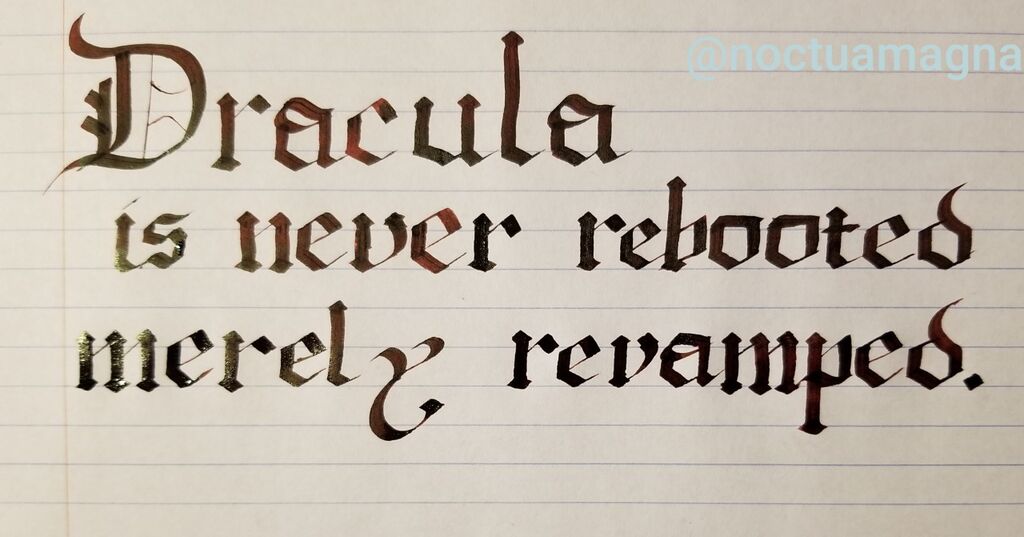 @noctuamagna
Dracula
is never rebooted
merely revamped.